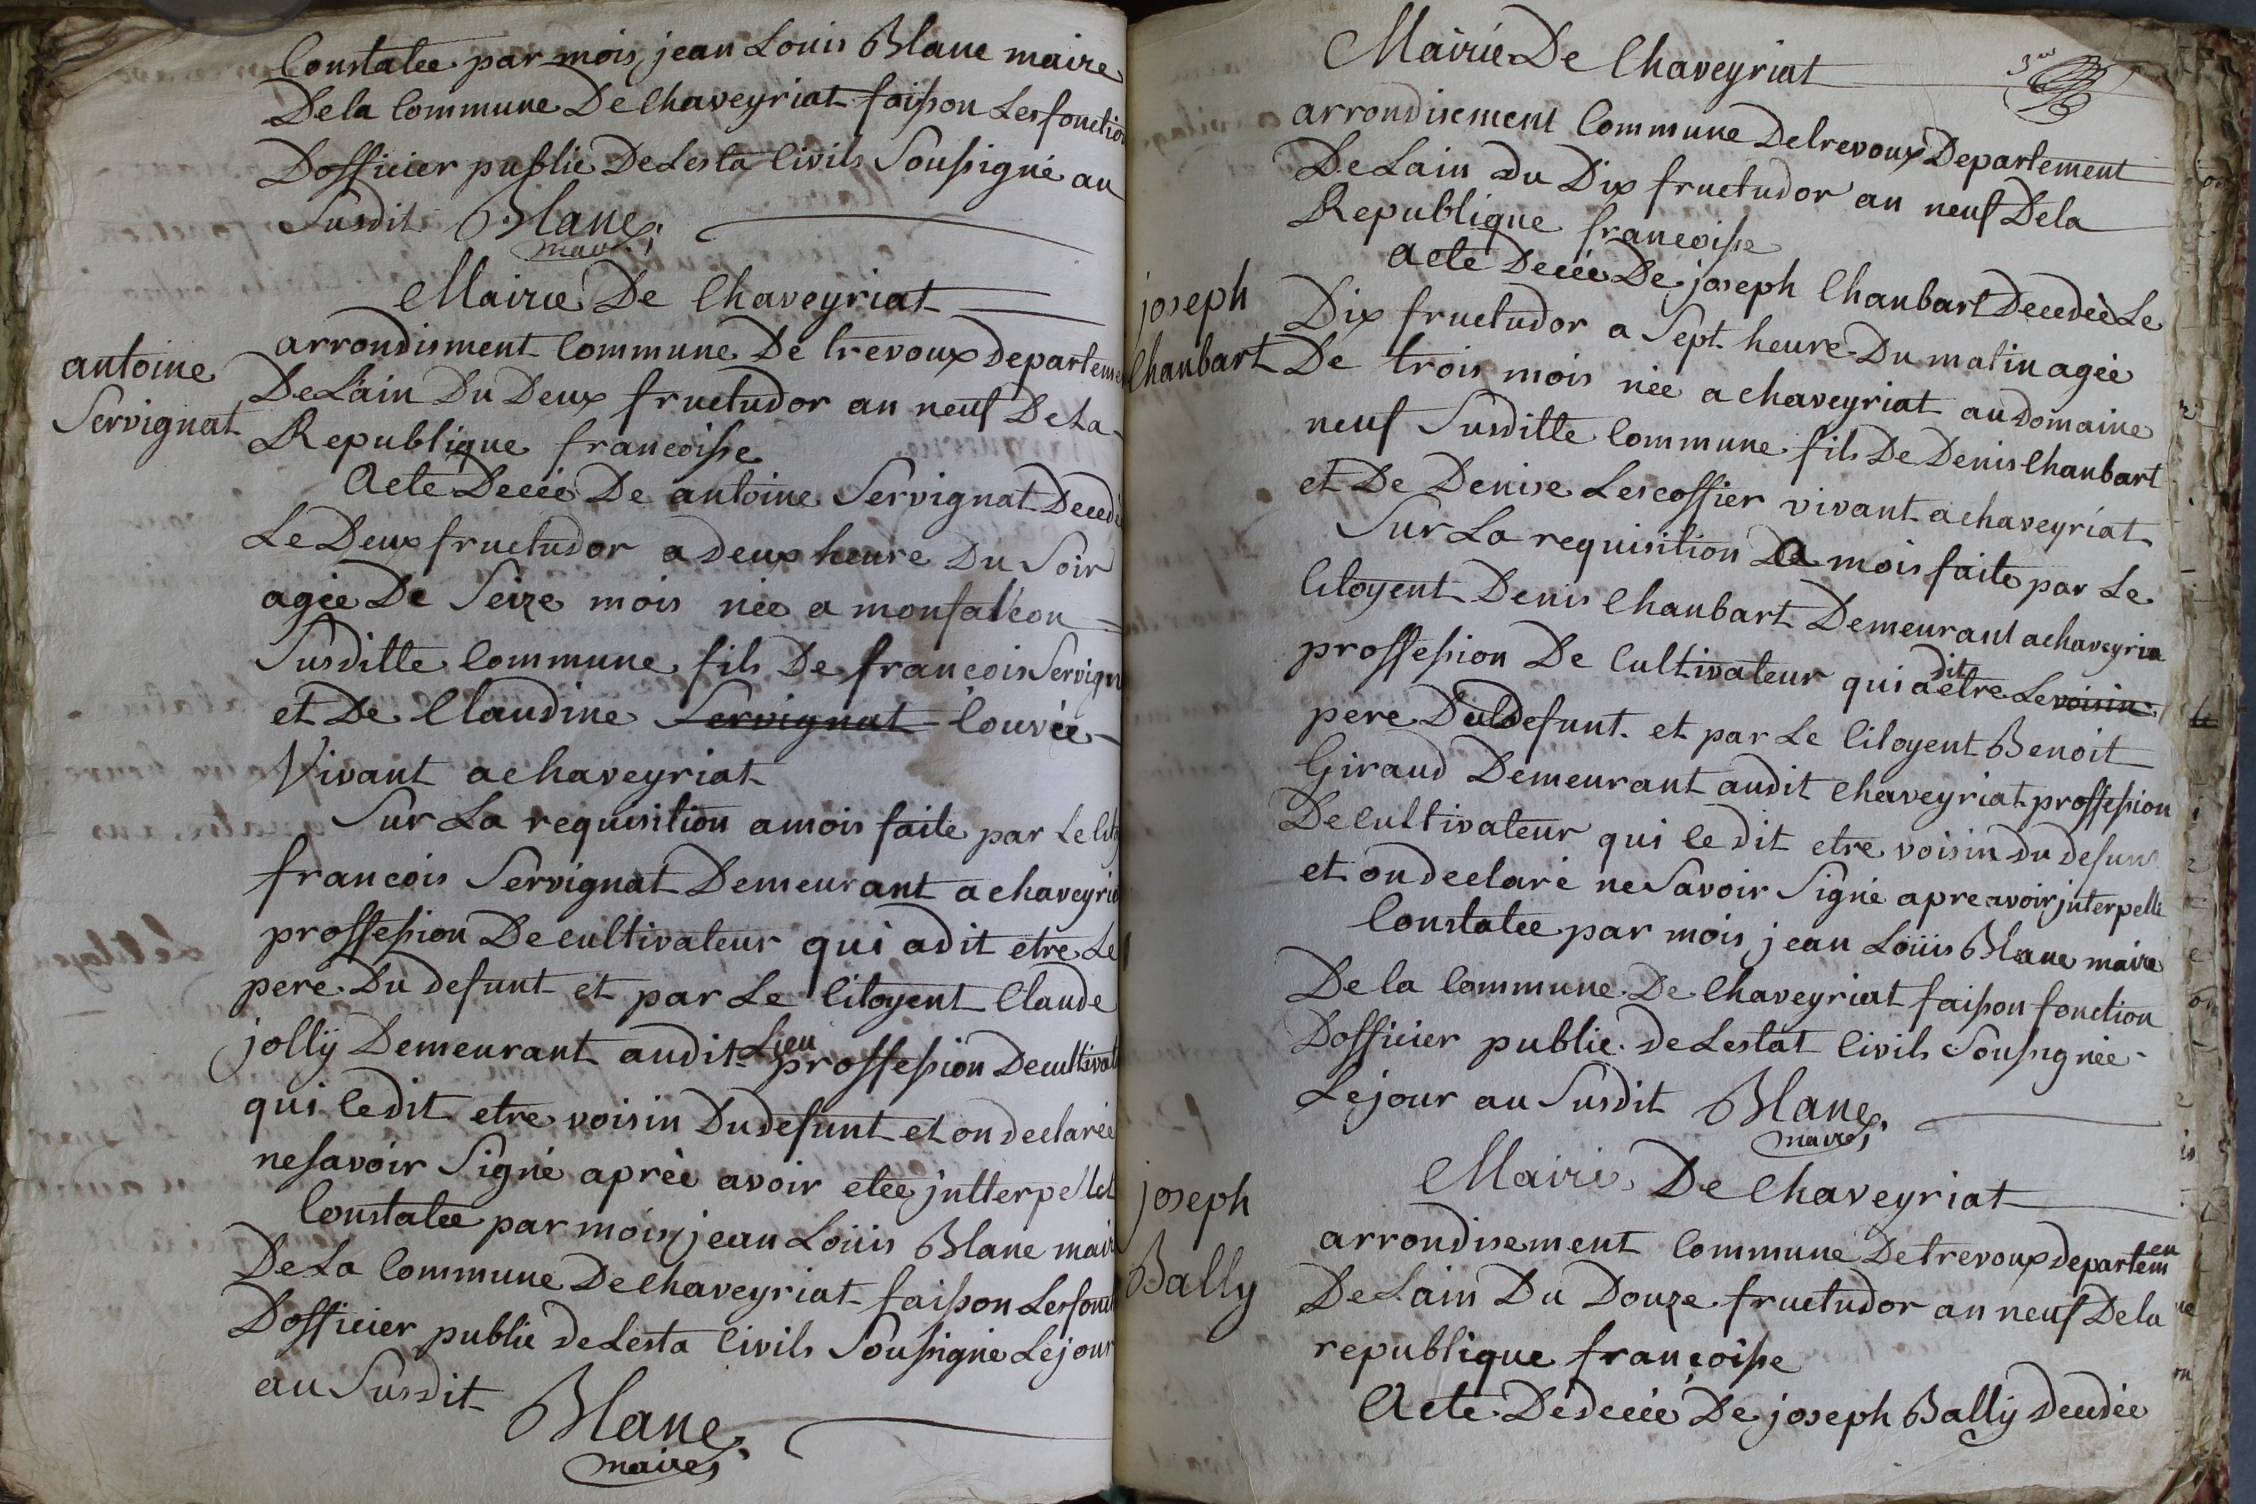 Constatee par mois jean Louis Blanc maire
De la Commune De Chaveyriat faisson Les fonction
Dofficier public De Lesta Civils Soussigné au
Susdit Blanc
maire
Mairie De Chaveyriat
antoine
Servignat
arrondisment Commune De trevoux departemen
De L'ain Du Deux fructudor an neuf De La
Republique francoisse
Acte Deceé De antoine Servignat Decedé
Le Deux fructudor a deux heure Du Soir
agée De Seize mois née a monfaléon
Susditte Commune fils De francois Servign
et De Claudine Servignat Couvée
Vivant a chaveyriat
Sur La requisition a mois faite par Le Cito
francois Servignat Demeurant a chaveyria
proffession De cultivateur qui a dit etre Le
pere Du defunt et par Le Citoyent Claude
jollÿ Demeurant audit Lieu proffession De cultivat
qui Ce dit etre voisin Du defunt et on declarée
ne savoir Signé aprèe avoir etée jntterpellet
Constatee par mois jean Loüis Blanc mair
De La Commune De Chaveyriat faisson Les fonct
Dofficier public de Lesta Civils Soussigné Le jour
au Susdit Blanc
maire
Mairie De Chaveyriat
arrondisement Commune De trevoux Departement
De Lain Du Dix fructudor an neuf De la
Republique francoisse
joseph
Chanbart
Acte Deceé De joseph Chanbart Decedèe Le
Dix fructudor a Sept heure Du matin agée
De trois mois née a chaveyriat au Domaine
neuf Susditte Commune fils De Denis Chanbart
et De Denise Lescoffier vivant a chaveyriat
Sur La requisition De mois faite par Le
Citoyent Denis Chanbart Demeurant a chaveyria
proffession De Cultivateur qui a dit etre Le voisin
pere Du defunt et par Le Citoyent Benoit
Giraud Demeurant audit Chaveyriat proffession
De cultivateur qui Ce dit etre voisin du defunt
et on declaré ne Savoir Signé apre avoir jnterpellé
Constatee par mois jean Loüis Blanc maire
De la Commune De Chaveyriat faisson fonction
Dofficier public de Lestat Civils Soussignée
Le jour au Susdit Blanc
maire
Mairie De Chaveyriat
joseph
Bally
arrondisement Commune De trevoux departemen
De Lain Du Douze fructudor an neuf De la
republique françoisse
Acte De deceé De joseph Bally decedée